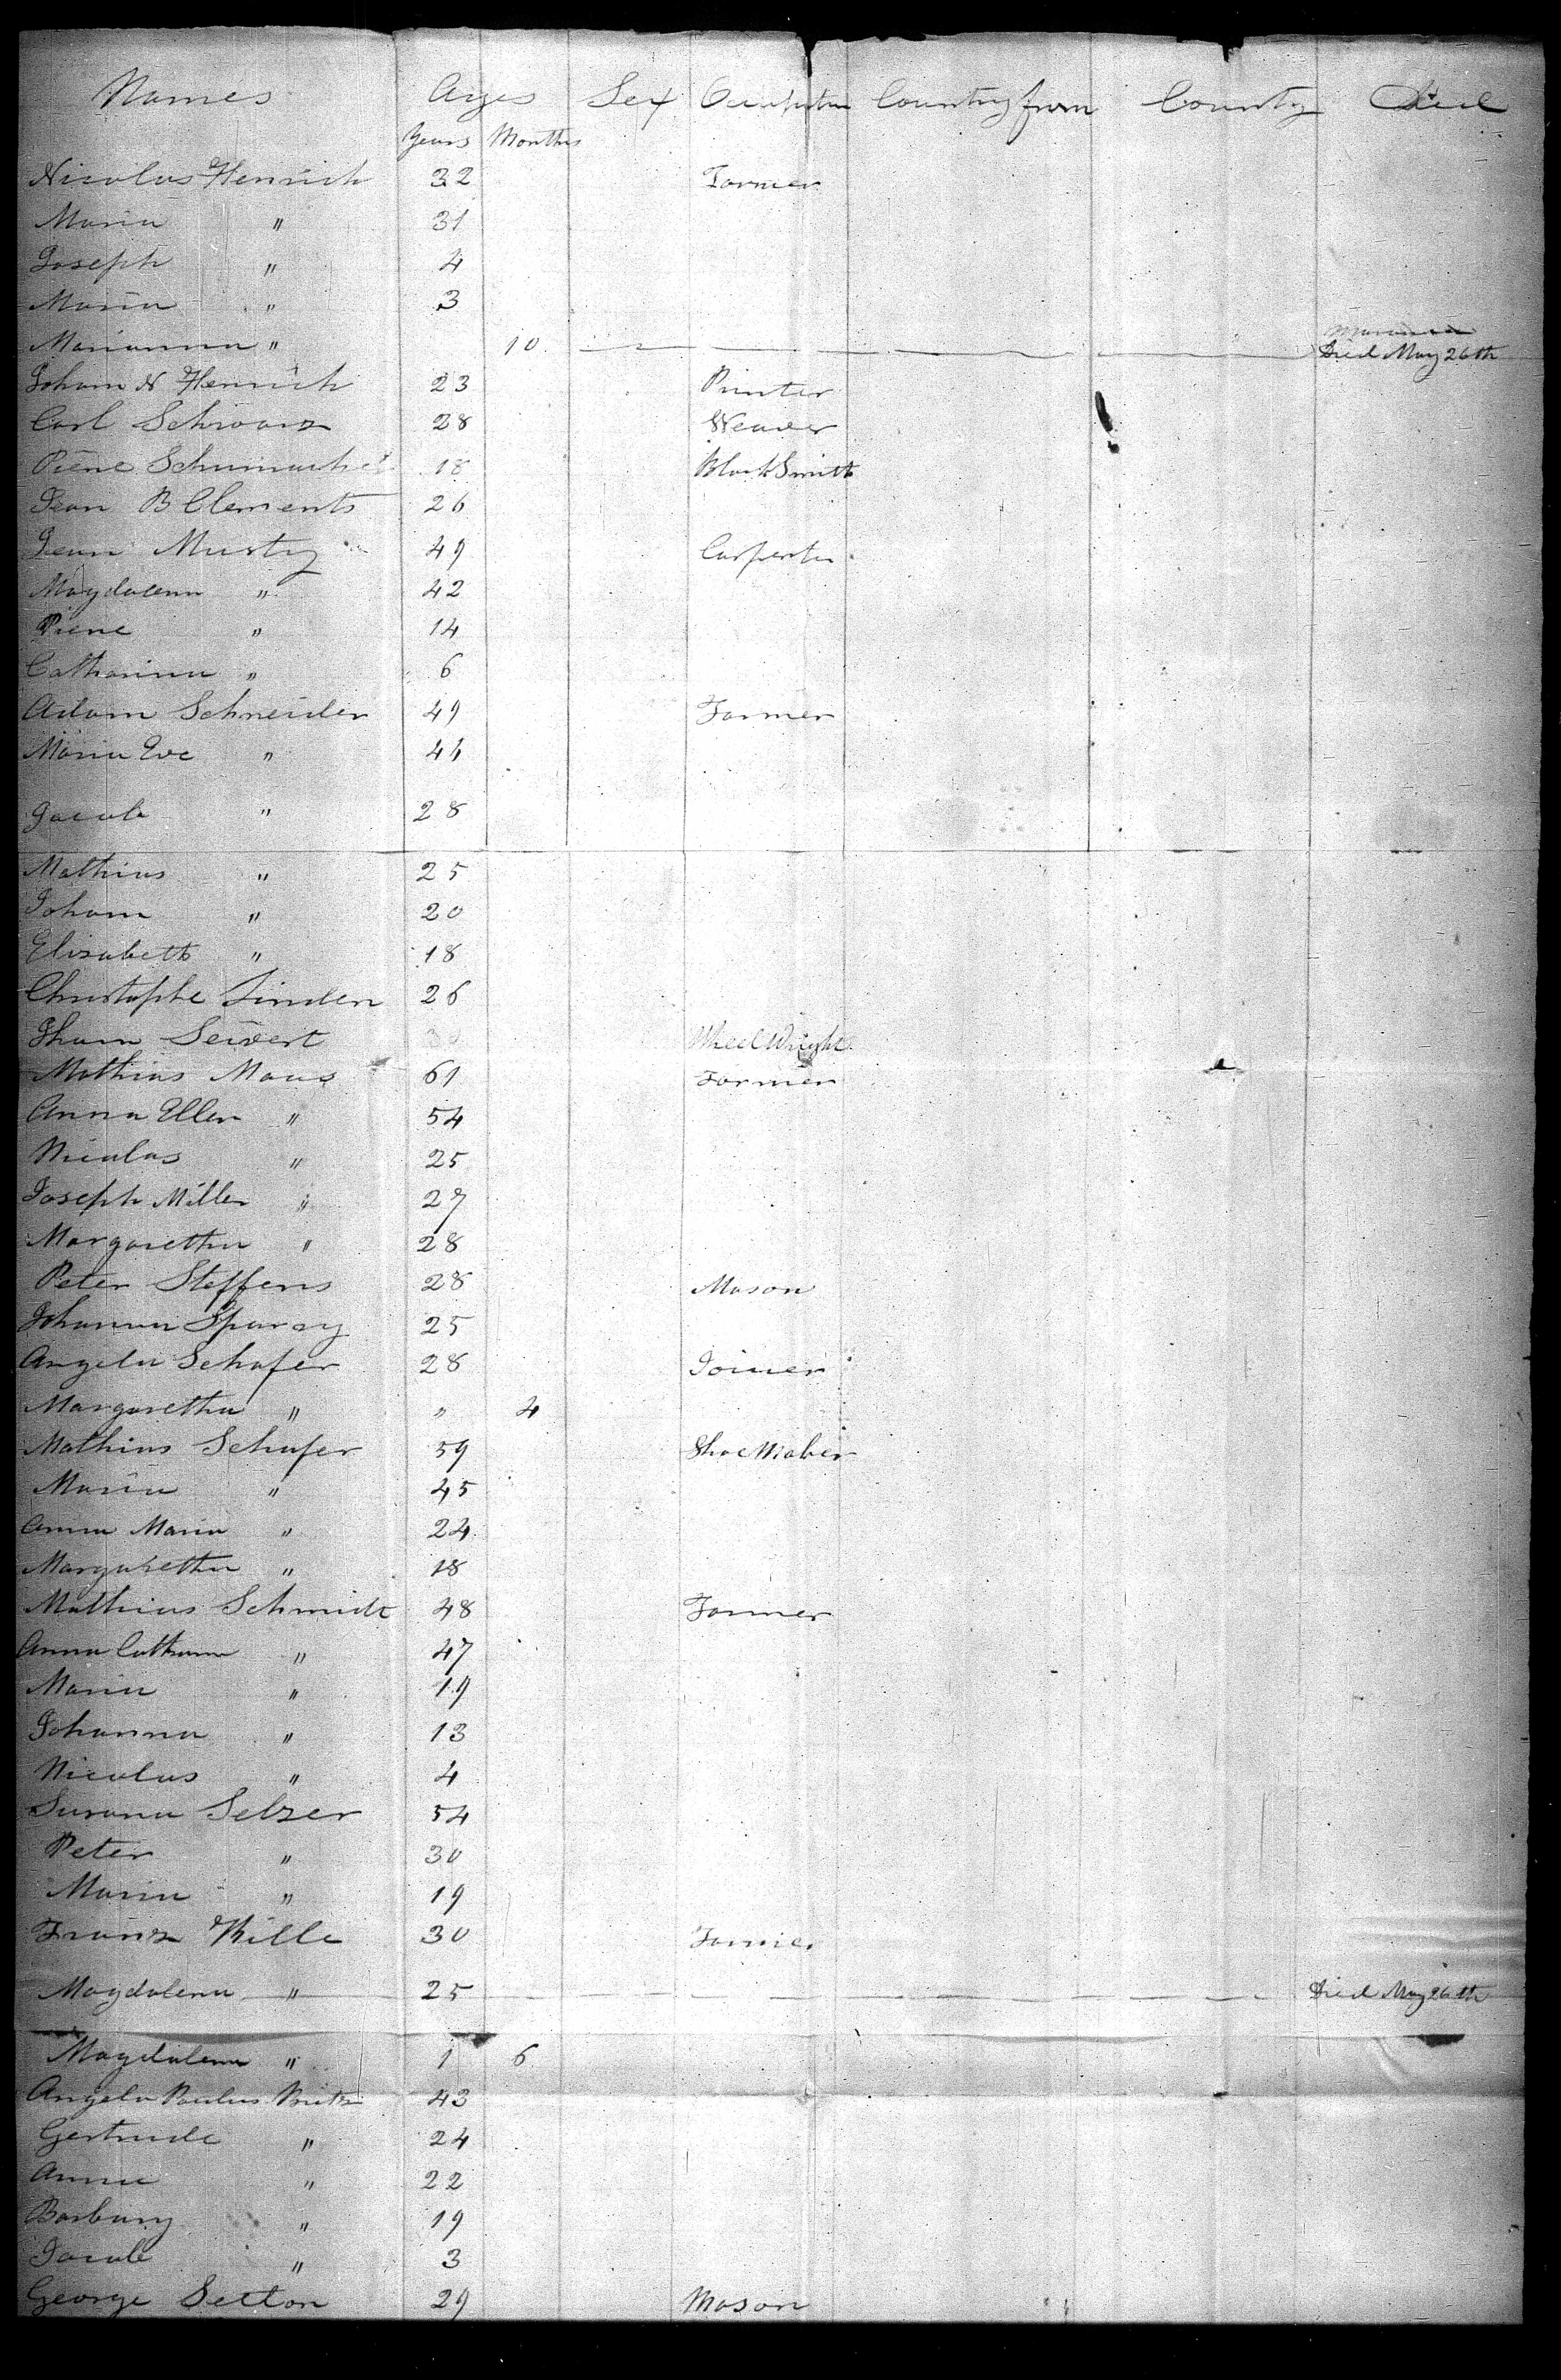 Names Ages Sex Occupation Country from County Died
Years Months
Nicolas Henrich 32 Farmer
Maria " 31
Joseph " 4
Maria " 3
Marianna " 10 Died May 26th
Joham N Henrich 23 Printer
Carl Schwarz 28 Weaver
Piere Schumacher 18 Black Smith
Jean B Clements 26
Jean Musty 49 Carpenter
Magdalena " 42
Piere " 14
Catharina " 6
Adam Schneider 49 Farmer
Maria Eve " 46
Jacob " 28
Mathias " 25
Joham " 20
Elisabeth " 18
Christophe Linden 26
Joham Seivert 30 Wheel Wright
Mathias Maus 61 Farmer
Anna Ellen " 54
Nicolas " 25
Joseph Miller " 27
Margaretha " 28
Peter Steffens 28 Mason
Johanna 25
Angela Schafer 28 Joiner
Margaretha " " 4
Mathias Schafer 59 Shoe Maker
Maria " 45
Anna Maria " 24
Margaretha " 18
Mathias Schmidt 48 Farmer
Anna Catharina " 47
Maria " 19
Johanna " 13
Nicolas " 4
Susana Selzer 54
Peter " 30
Maria " 19
Franz Wille 30 Farmer
Magdalena " 25 Died May 26th
Magdalena " 1 6
Angela Paulus 43
Gertrude " 24
Anna " 22
Barbary " 19
Jacob " 3
George Setton 29 Mason